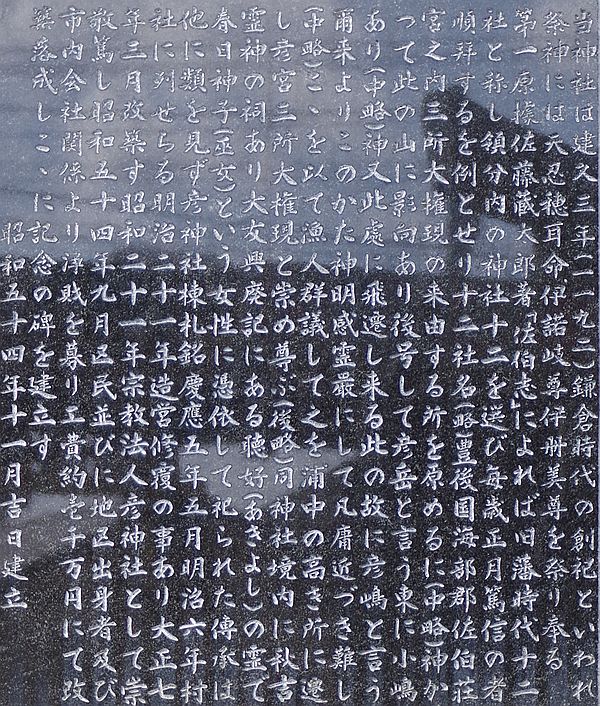 当神社は建久三年(一一九二)鎌倉時代の創祀といわれ
祭神には天忍穂耳命伊諾岐尊伊冊美尊を祭り奉る
第一原據佐藤蔵太郎著「佐伯志」によれば旧藩時代十二
社と称し領分内の神社十二を選び毎歳正月篤信の者
順拜するを例とせり十二社名(略)豊後国海部郡佐伯荘
宮之内三所大権現の来由する所を原めるに(中略)神か
つて此の山に影向あり後号して彦岳と言う東に小嶋
あり(中略)神又此處に飛遷し来る此の故に彦嶋と言う
爾来よりこのかた神明感霊嚴にして凡庸近づき難し
(中略)こゝを以て漁人群議して之を浦中の高き所に遷
し彦宮三所大権現と崇め尊ぶ(後略)同神社境内に秋吉
霊神の祠あり大友興廃記にある聴好(あきよし)の霊で
春日神子(巫女)という女性に憑依して祀られた傳承は
他に類を見ず彦神社棟札銘慶應五年五月明治六年村
社に列せらる明治二十一年造宮修復の事あり大正七
年三月改築す昭和二十一年宗教法人彦神社として崇
敬篤し昭和五十四年九月区民並びに地区出身者及び
市内会社関係より浄財を募り工費約壱千万円にて改
築落成しこゝに記念の碑を建立す
昭和五十四年十一月吉日建立